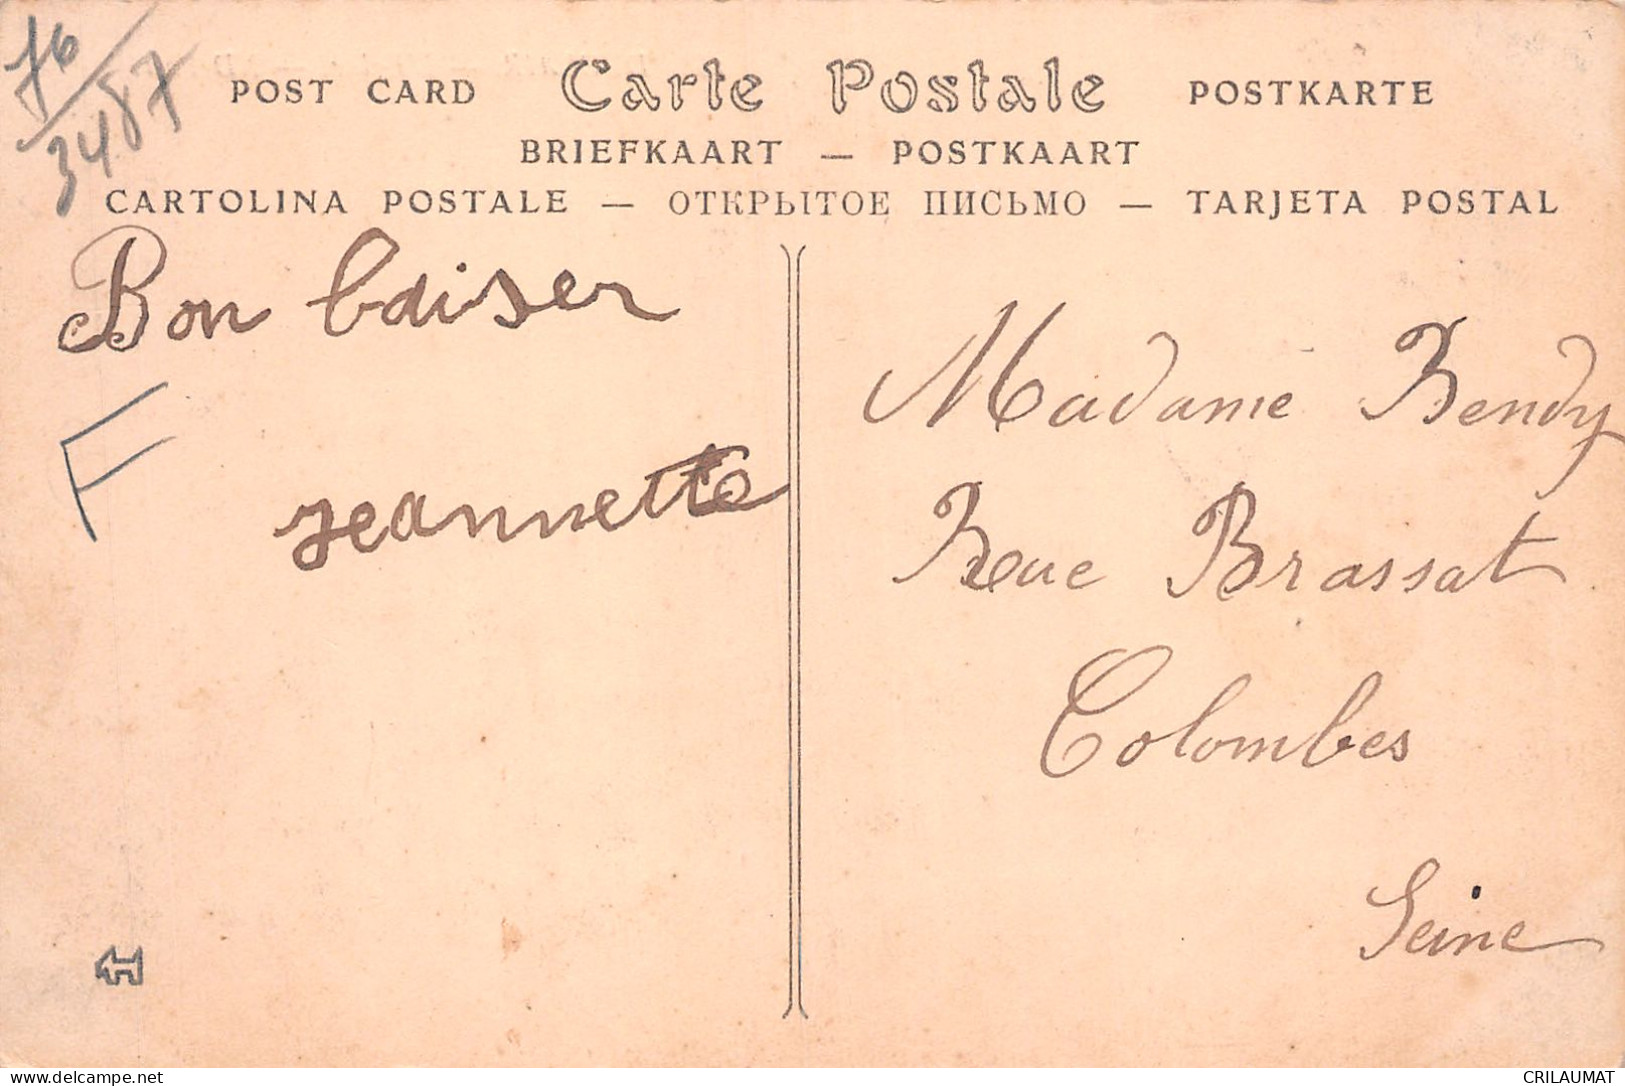 76
3487
POST CARD Carte Postale POSTKARTE
BRIEFKAART — POSTKAART
CARTOLINA POSTALE — ОТКРЫТОЕ ПИСЬМО — TARJETA POSTAL
Bon baiser
F
jeannette
Madame Rendy
Rue Brassat
Colombes
Seine
delcampe.net
CRILAUMAT